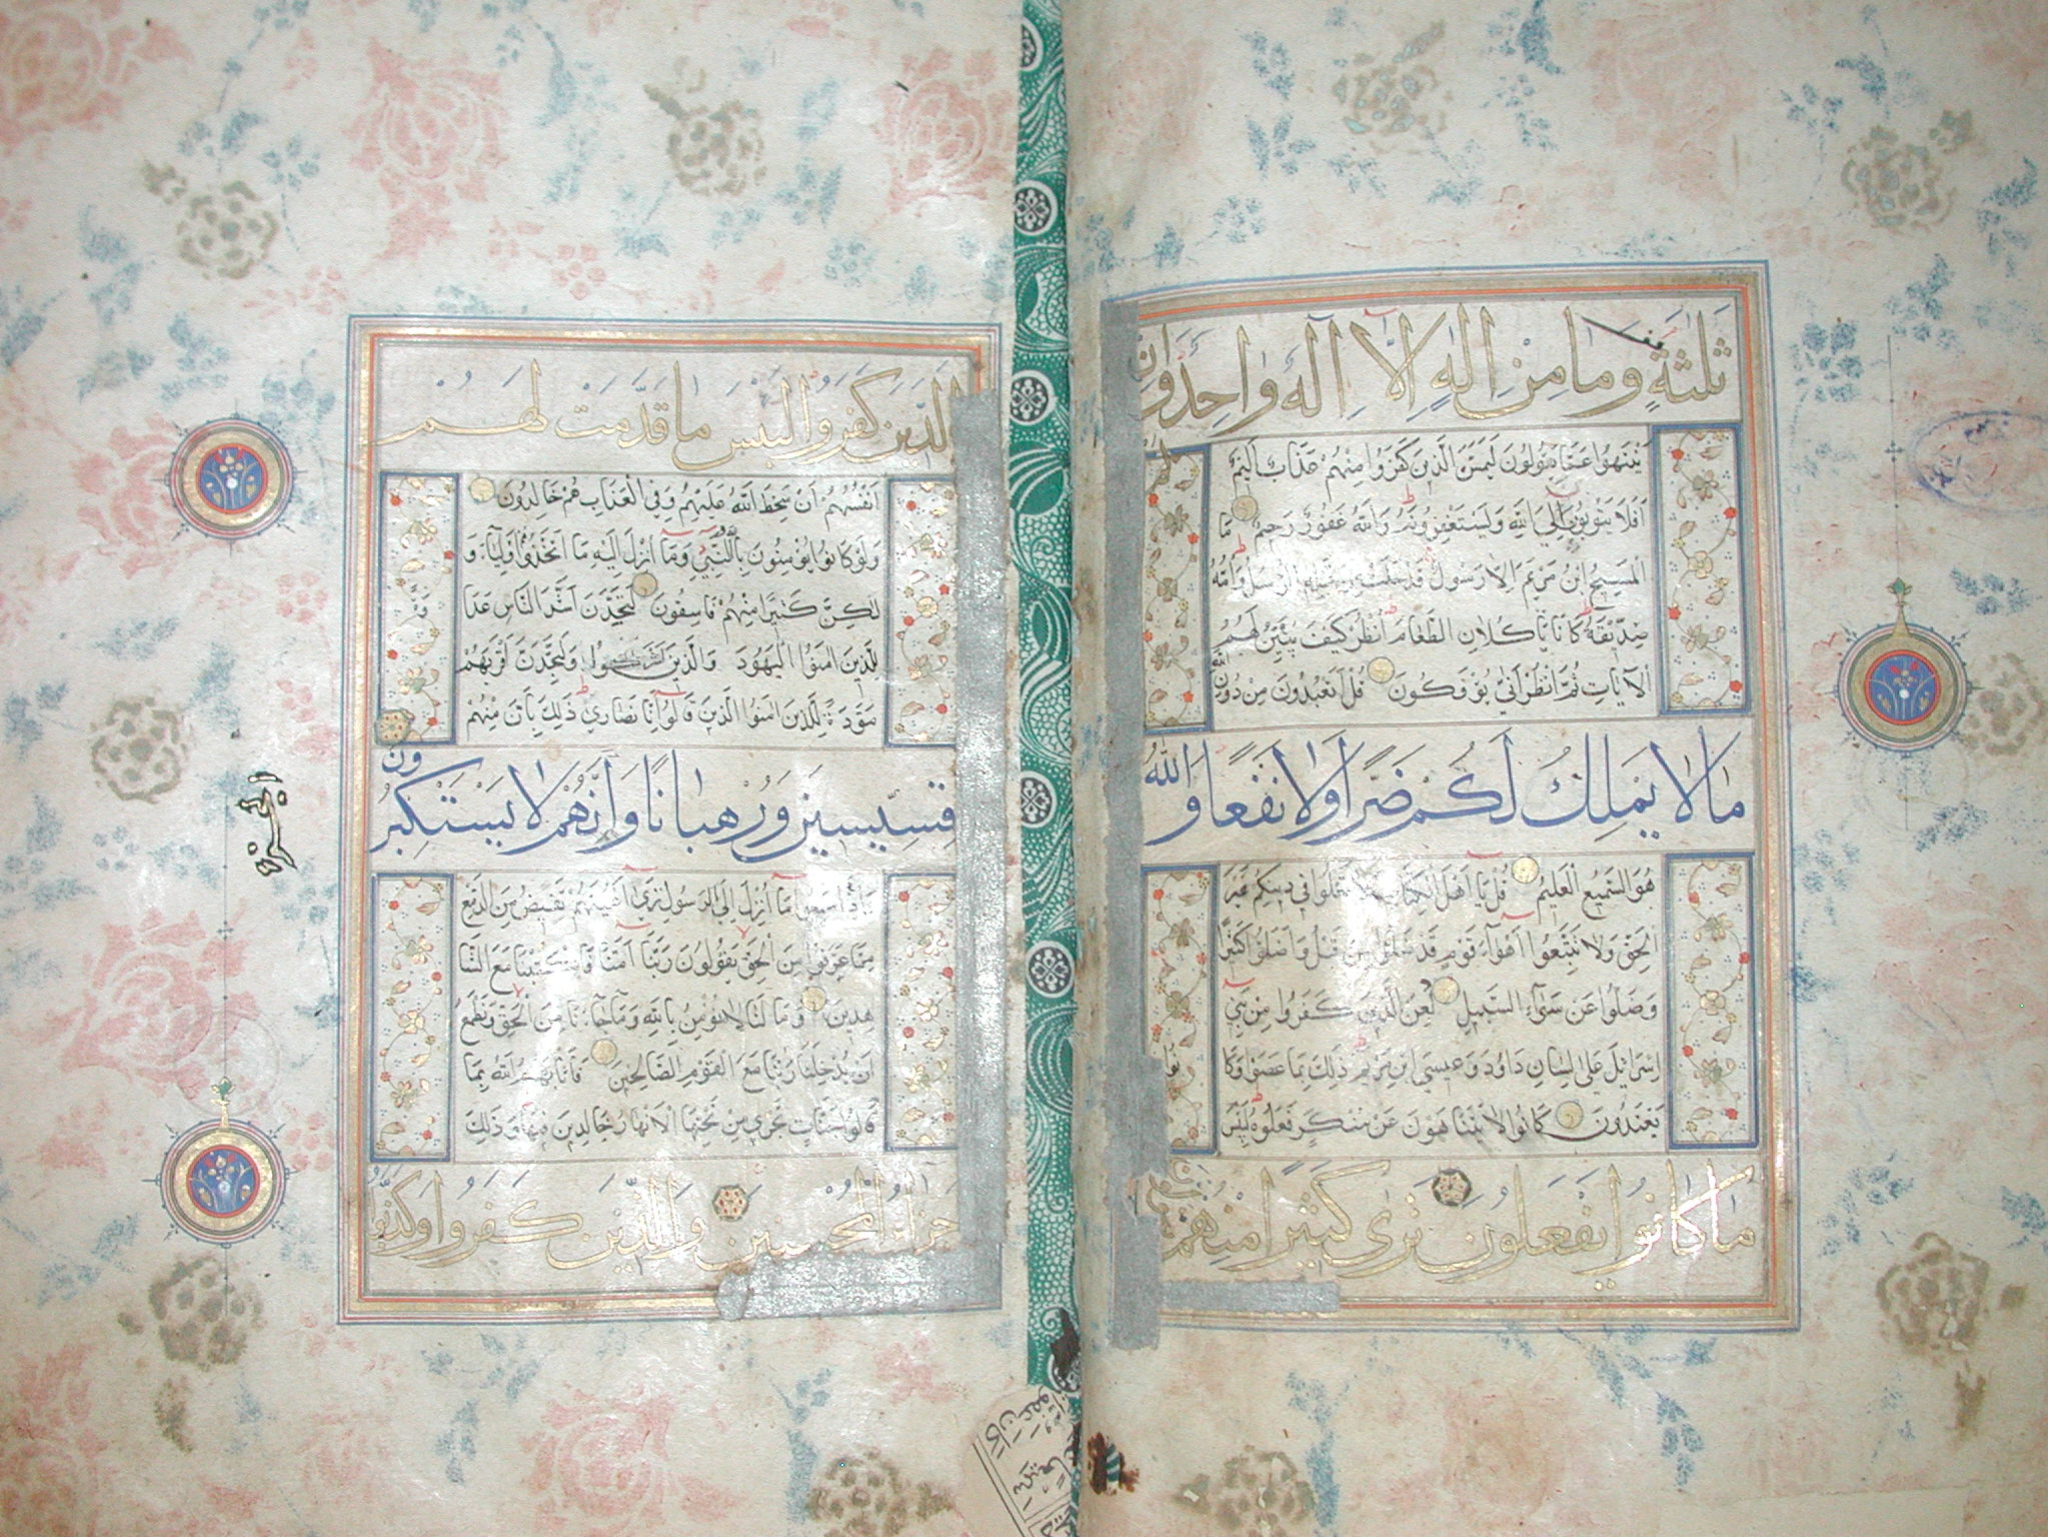 ثلثة وما من اله الا اله واحد وان
ينتهوا عما يقولون ليمسن الذين كفروا منهم عذاب اليم
افلا يتوبون الى الله ويستغفرونه والله غفور رحيم ما
المسيح ابن مريم الا رسول قد خلت من قبله الرسل وامه
صديقة كانا ياكلان الطعام انظر كيف نبين لهم
الايات ثم انظر انى يؤفكون قل اتعبدون من دون الله
ما لا يملك لكم ضرا ولا نفعا والله
هو السميع العليم قل يا اهل الكتاب لا تغلوا في دينكم غير
الحق ولا تتبعوا اهواء قوم قد ضلوا من قبل واضلوا كثيرا
وضلوا عن سواء السبيل لعن الذين كفروا من بني
اسرائيل على لسان داود وعيسى ابن مريم ذلك بما عصوا وكانوا
يعتدون كانوا لا يتناهون عن منكر فعلوه لبئس
ما كانوا يفعلون ترى كثيرا منهم يتولون
الذين كفروا لبئس ما قدمت لهم
انفسهم ان سخط الله عليهم وفي العذاب هم خالدون
ولو كانوا يؤمنون بالله والنبي وما انزل اليه ما اتخذوهم اولياء و
لكن كثيرا منهم فاسقون لتجدن اشد الناس عداوة
للذين امنوا اليهود والذين اشركوا ولتجدن اقربهم
مودة للذين امنوا الذين قالوا انا نصارى ذلك بان منهم
قسيسين ورهبانا وانهم لا يستكبرون
واذا سمعوا ما انزل الى الرسول ترى اعينهم تفيض من الدمع
مما عرفوا من الحق يقولون ربنا امنا فاكتبنا مع الشا
هدين وما لنا لا نؤمن بالله وما جاءنا من الحق ونطمع
ان يدخلنا ربنا مع القوم الصالحين فاثابهم الله بما
قالوا جنات تجري من تحتها الانهار خالدين فيها وذلك
جزاء المحسنين والذين كفروا وكذبوا